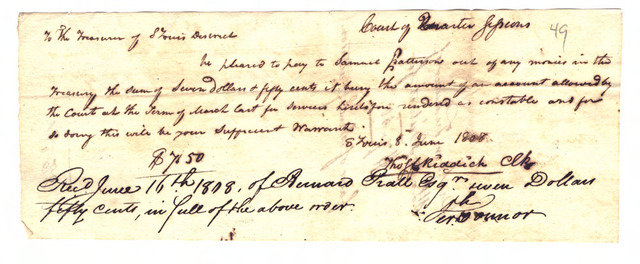 Court of Quarter Sessions
49
To the Treasurer of St Louis District
be pleased to pay to Samuel Patterson out of any monies in the
Treasury the sum of Seven Dollars & fifty cents it being the amount of an account allowed by
the Court at the Term of March last for services heretofore rendered as constable and for
so doing this will be your sufficient Warrant
St Louis, 8. June 1808
$ 7.50
Riddick Clk
Recd June 16th 1808, of Bernard Pratt Esqr seven Dollars
fifty cents, in full of the above order.
Connor